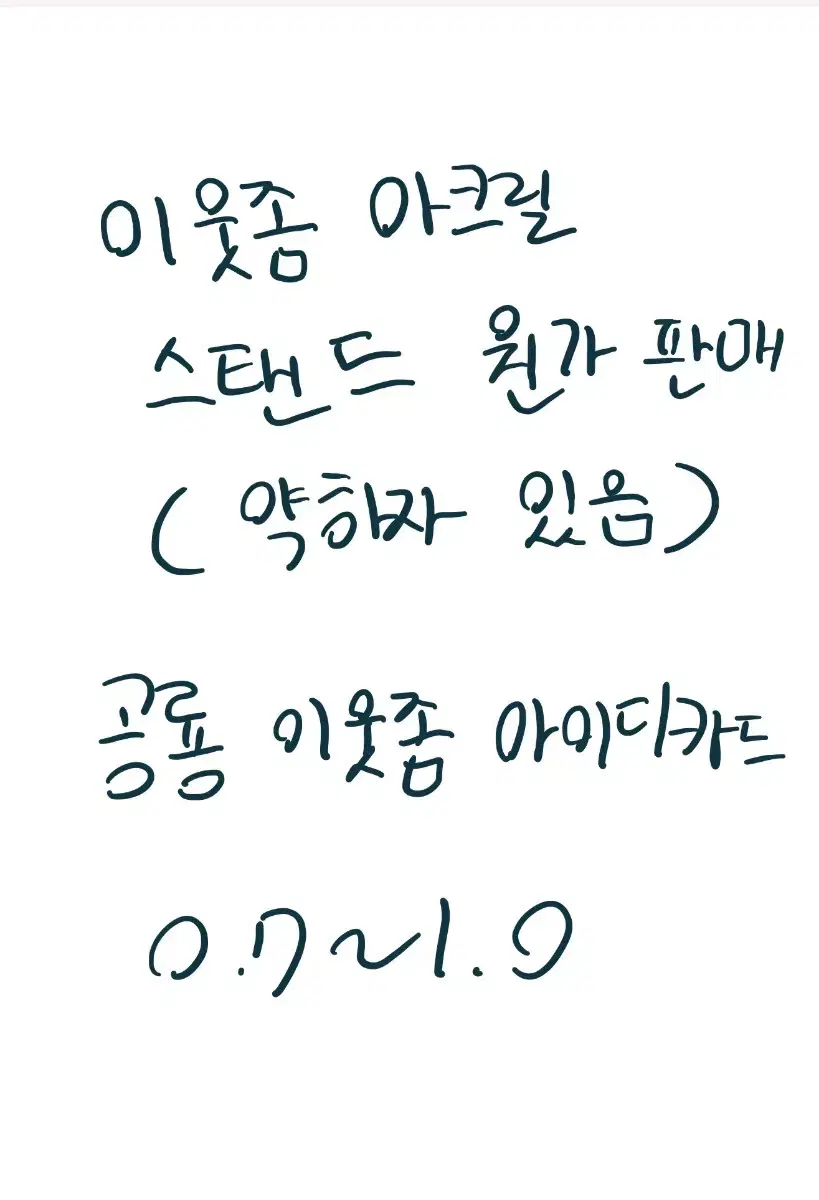 이웃좀 아크릴
스탠드 원가 판매
(약하자 있음)
공룡 이웃좀 아이디카드
0.7~1.0